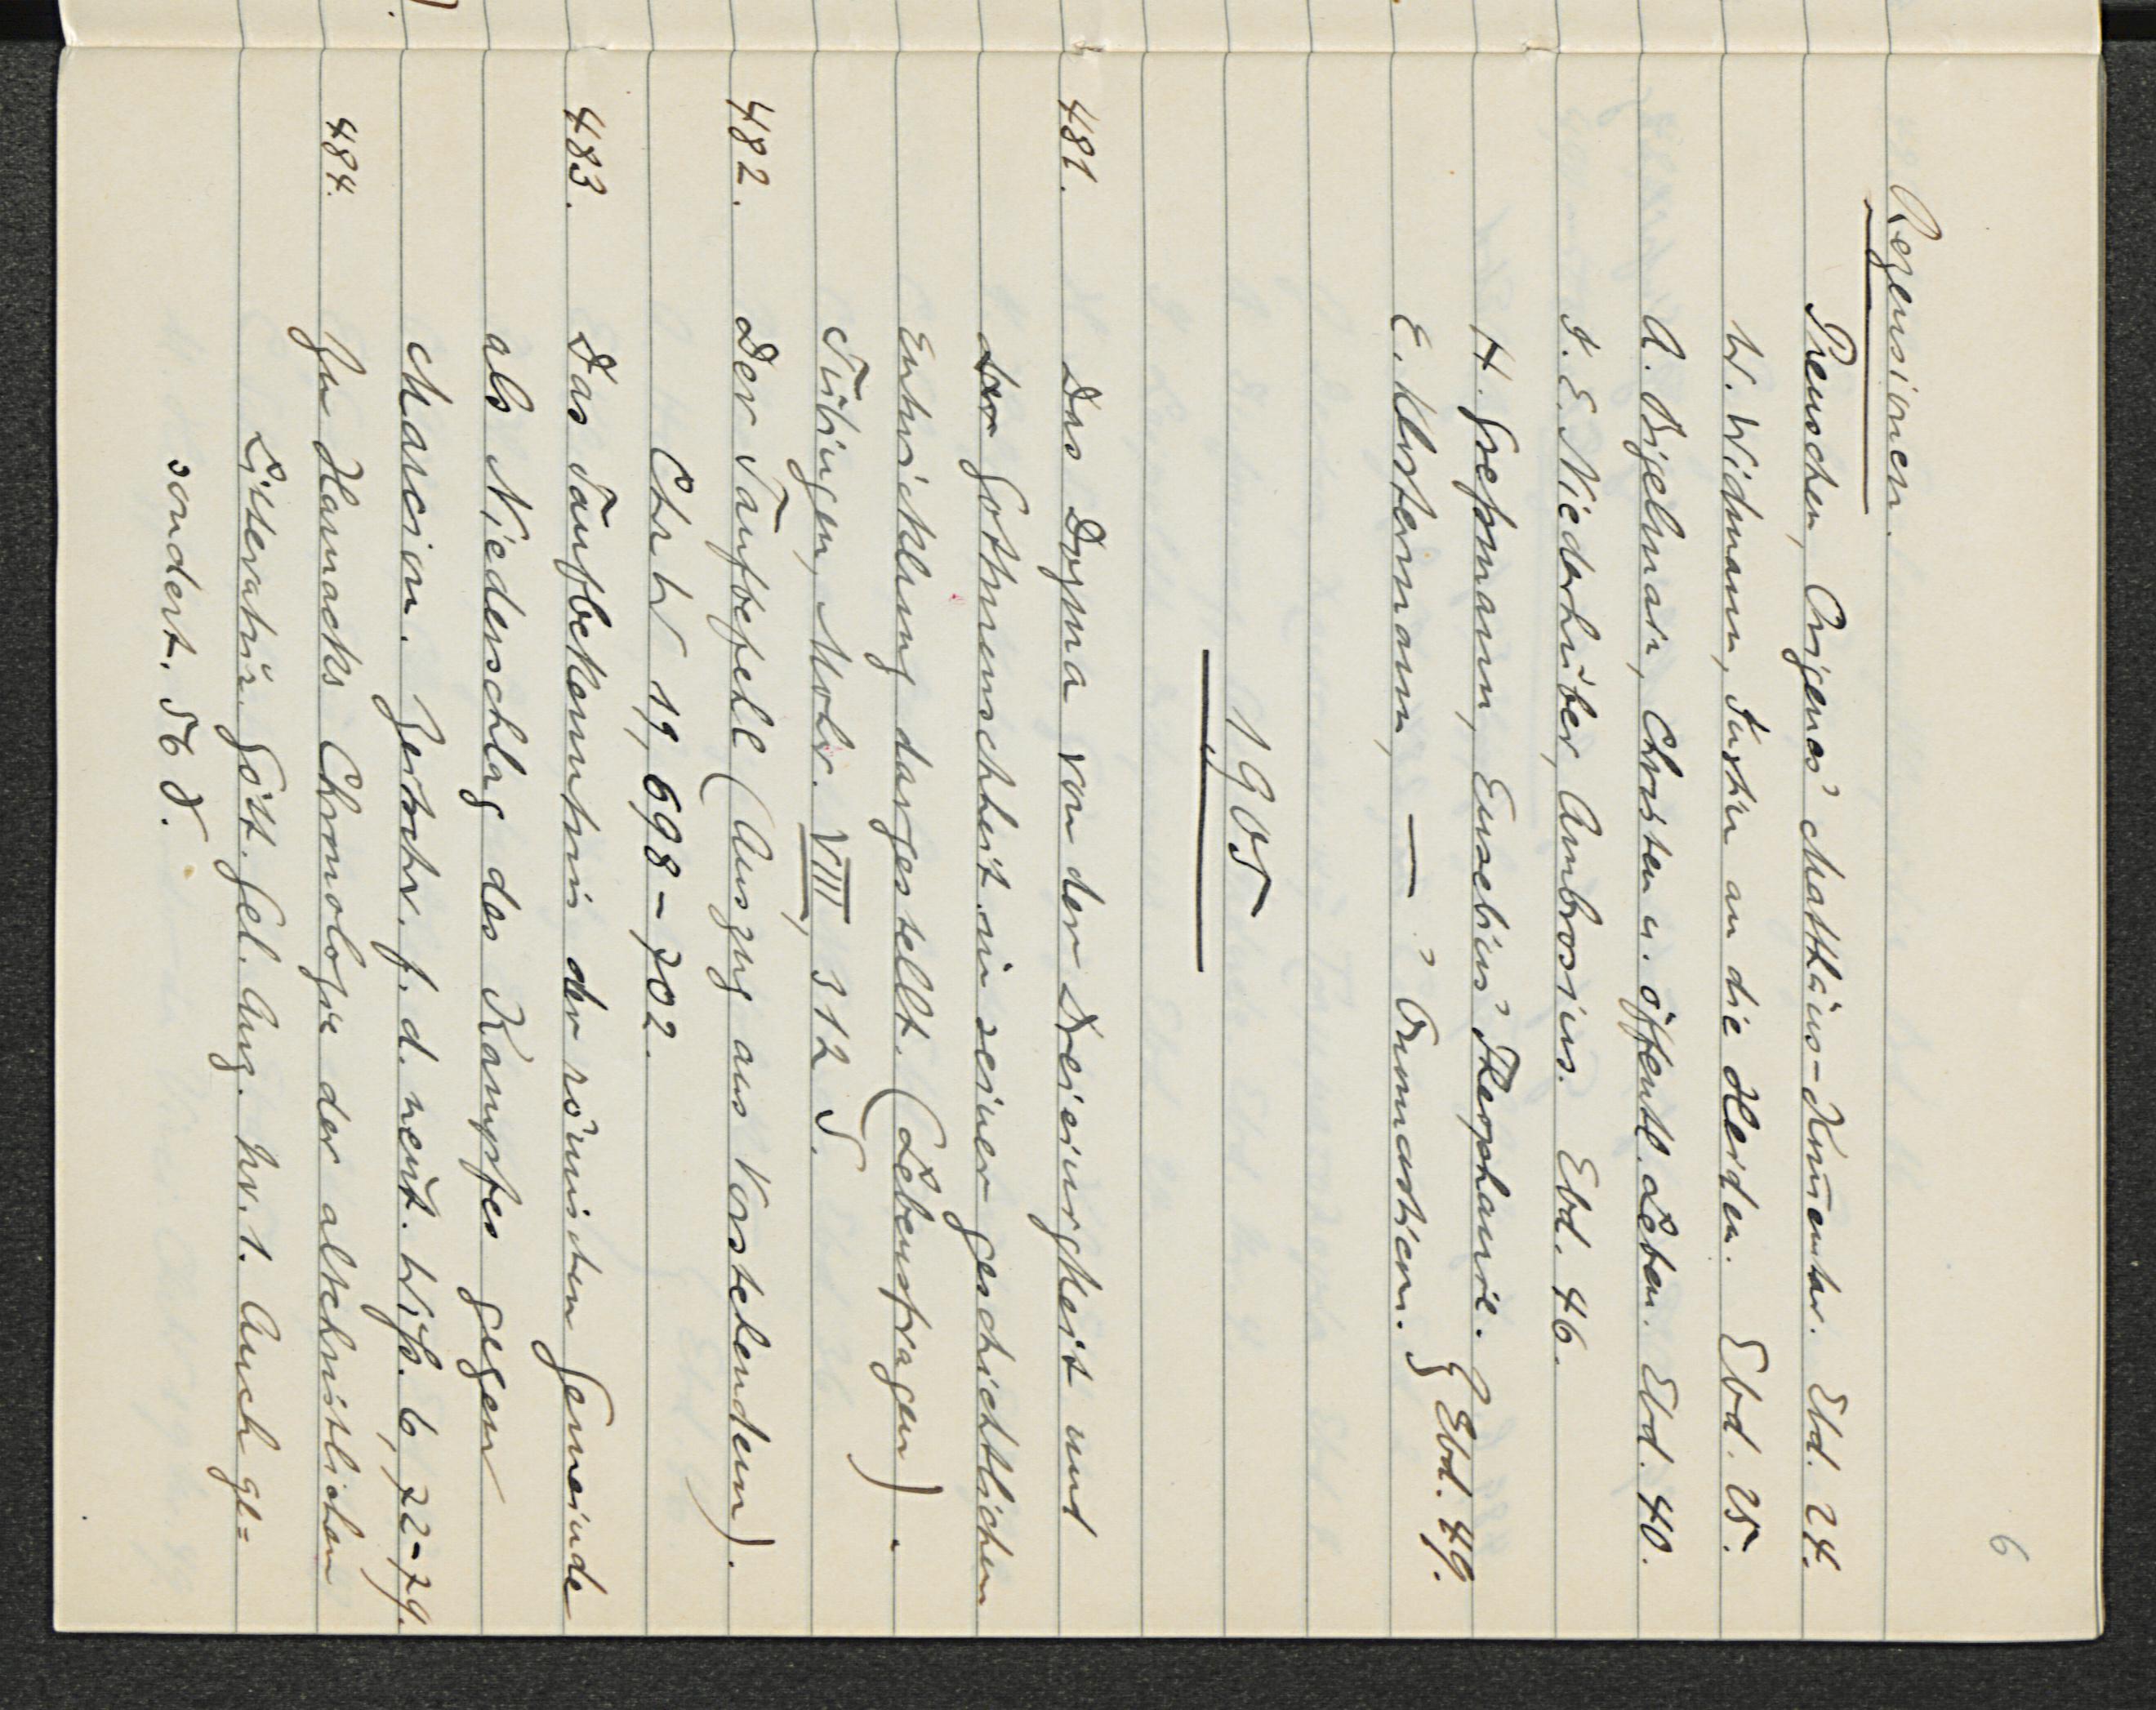 6
Rezensionen.
Preuschen, Origenes' Matthäus-Kom̄entar. Ebd. 24.
W. Widmann, Justin an die Heiden. Ebd. 25.
A. Bigelmair, Christen u. öffentl. Leben. Ebd. 40.
J. E. Niederhuber, Ambrosius. Ebd. 46.
H. Greßmann, Eusebius' Theophanie. } Ebd. 49.
E. Klostermann, — ' Onomasticon.
1905
481. Das Dogma von der Dreieinigkeit und
Gottmenschheit in seiner geschichtlichen
Entwicklung dargestellt. (Lebensfragen).
Tübingen, Mohr. VIII, 312 S.
482. Der Taufbefehl (Auszug aus Vorstehendem).
ChrW 19, 698-702.
483. Das Taufbekenntnis der römischen Gemeinde
als Niederschlag des Kampfes gegen
Marcion. Zeitschr. f. d. neut. Wiß. 6, 72-79.
484. Zu Harnacks Chronologie der altchristlichen
Litteratur. Gött. Gel. Anz. Nr. 1. Auch ge=
sondert. 56 S.